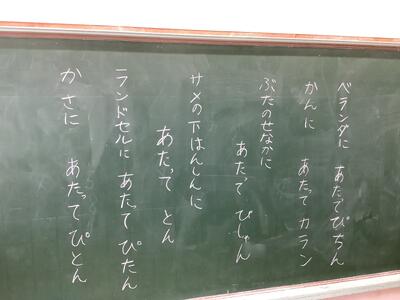 ベランダに あたでぴちん
かんに あたって カラン
ぶたのせなかに
あたて びしゃん
サメの下はんしんに
あたって とん
ランドセルに あたて ぴたん
かさに あたって ぴとん